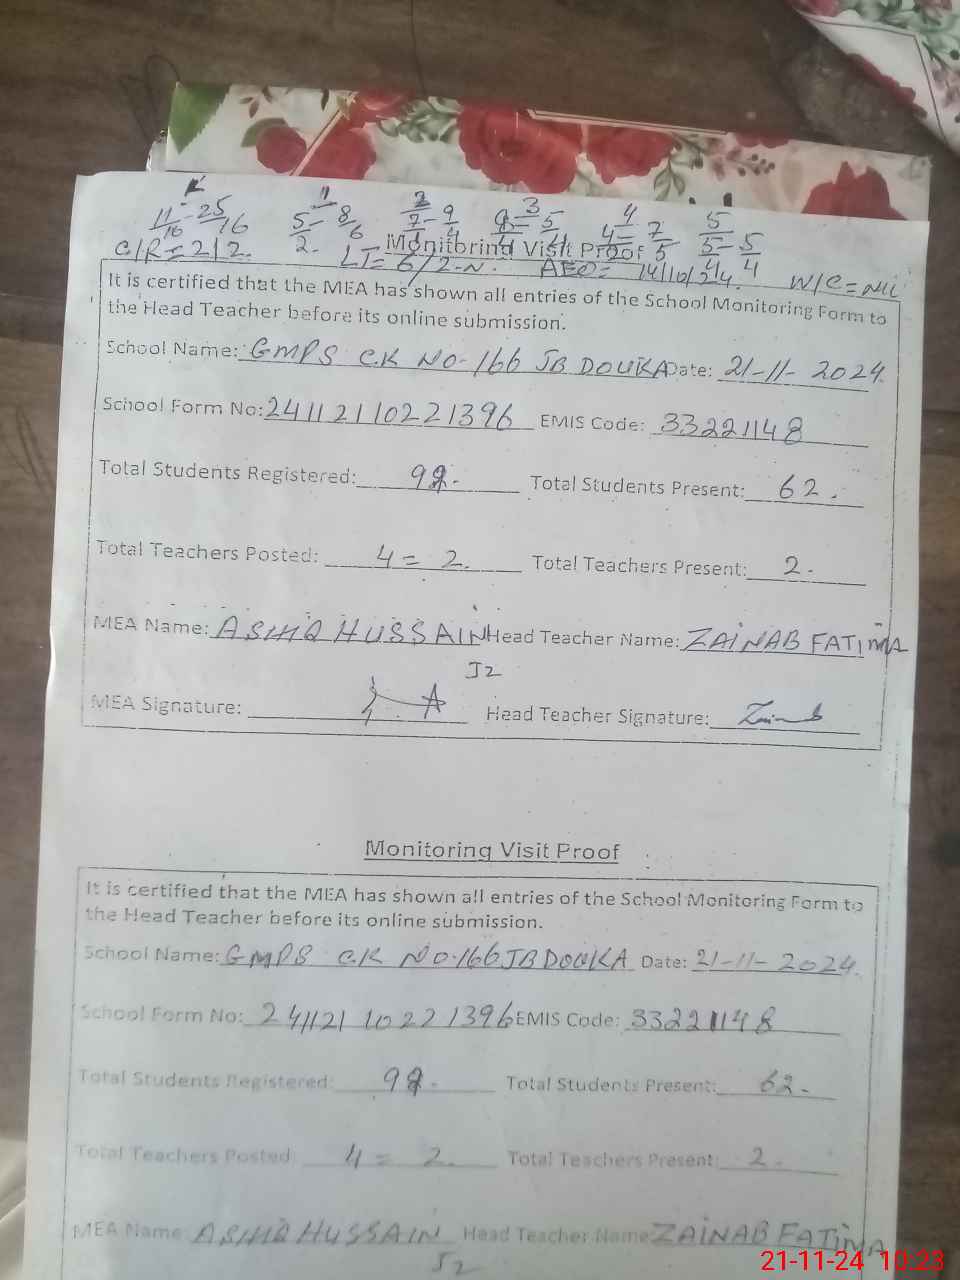 1 3 4 5
11/16 - 25/16 5/2 - 8/6 7/4 - 9/4 5/4 7/5 5/4 - 5/4
C/R = 2/2. LT = 6/2-N. AEO = 14/10/24. W/C = NIL
Monitoring Visit Proof
It is certified that the MEA has shown all entries of the School Monitoring Form to
the Head Teacher before its online submission.
School Name: GMPS C.K NO-166 JB DOUKA Date: 21-11-2024.
School Form No: 24112110221396 EMIS Code: 33221148
Total Students Registered: Total Students Present: 62.
Total Teachers Posted: 4 = 2. Total Teachers Present: 2.
MEA Name: ASHIQ HUSSAIN Head Teacher Name: ZAINAB FATIMA
J2
MEA Signature: Head Teacher Signature: Zainab
Monitoring Visit Proof
It is certified that the MEA has shown all entries of the School Monitoring Form to
the Head Teacher before its online submission.
School Name: GMPS C.K NO.166 JB DOUKA Date: 21-11-2024.
School Form No: 24112110221396 EMIS Code: 33221148
Total Students Registered: Total Students Present: 62.
Total Teachers Posted: 4 = 2. Total Teachers Present: 2.
MEA Name: ASHIQ HUSSAIN Head Teacher Name: ZAINAB FATIMA
J2
21-11-24 10:23